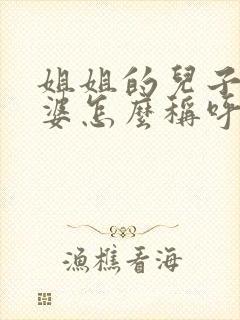 姐姐的兒子
婆怎麼稱呼
漁樵看海